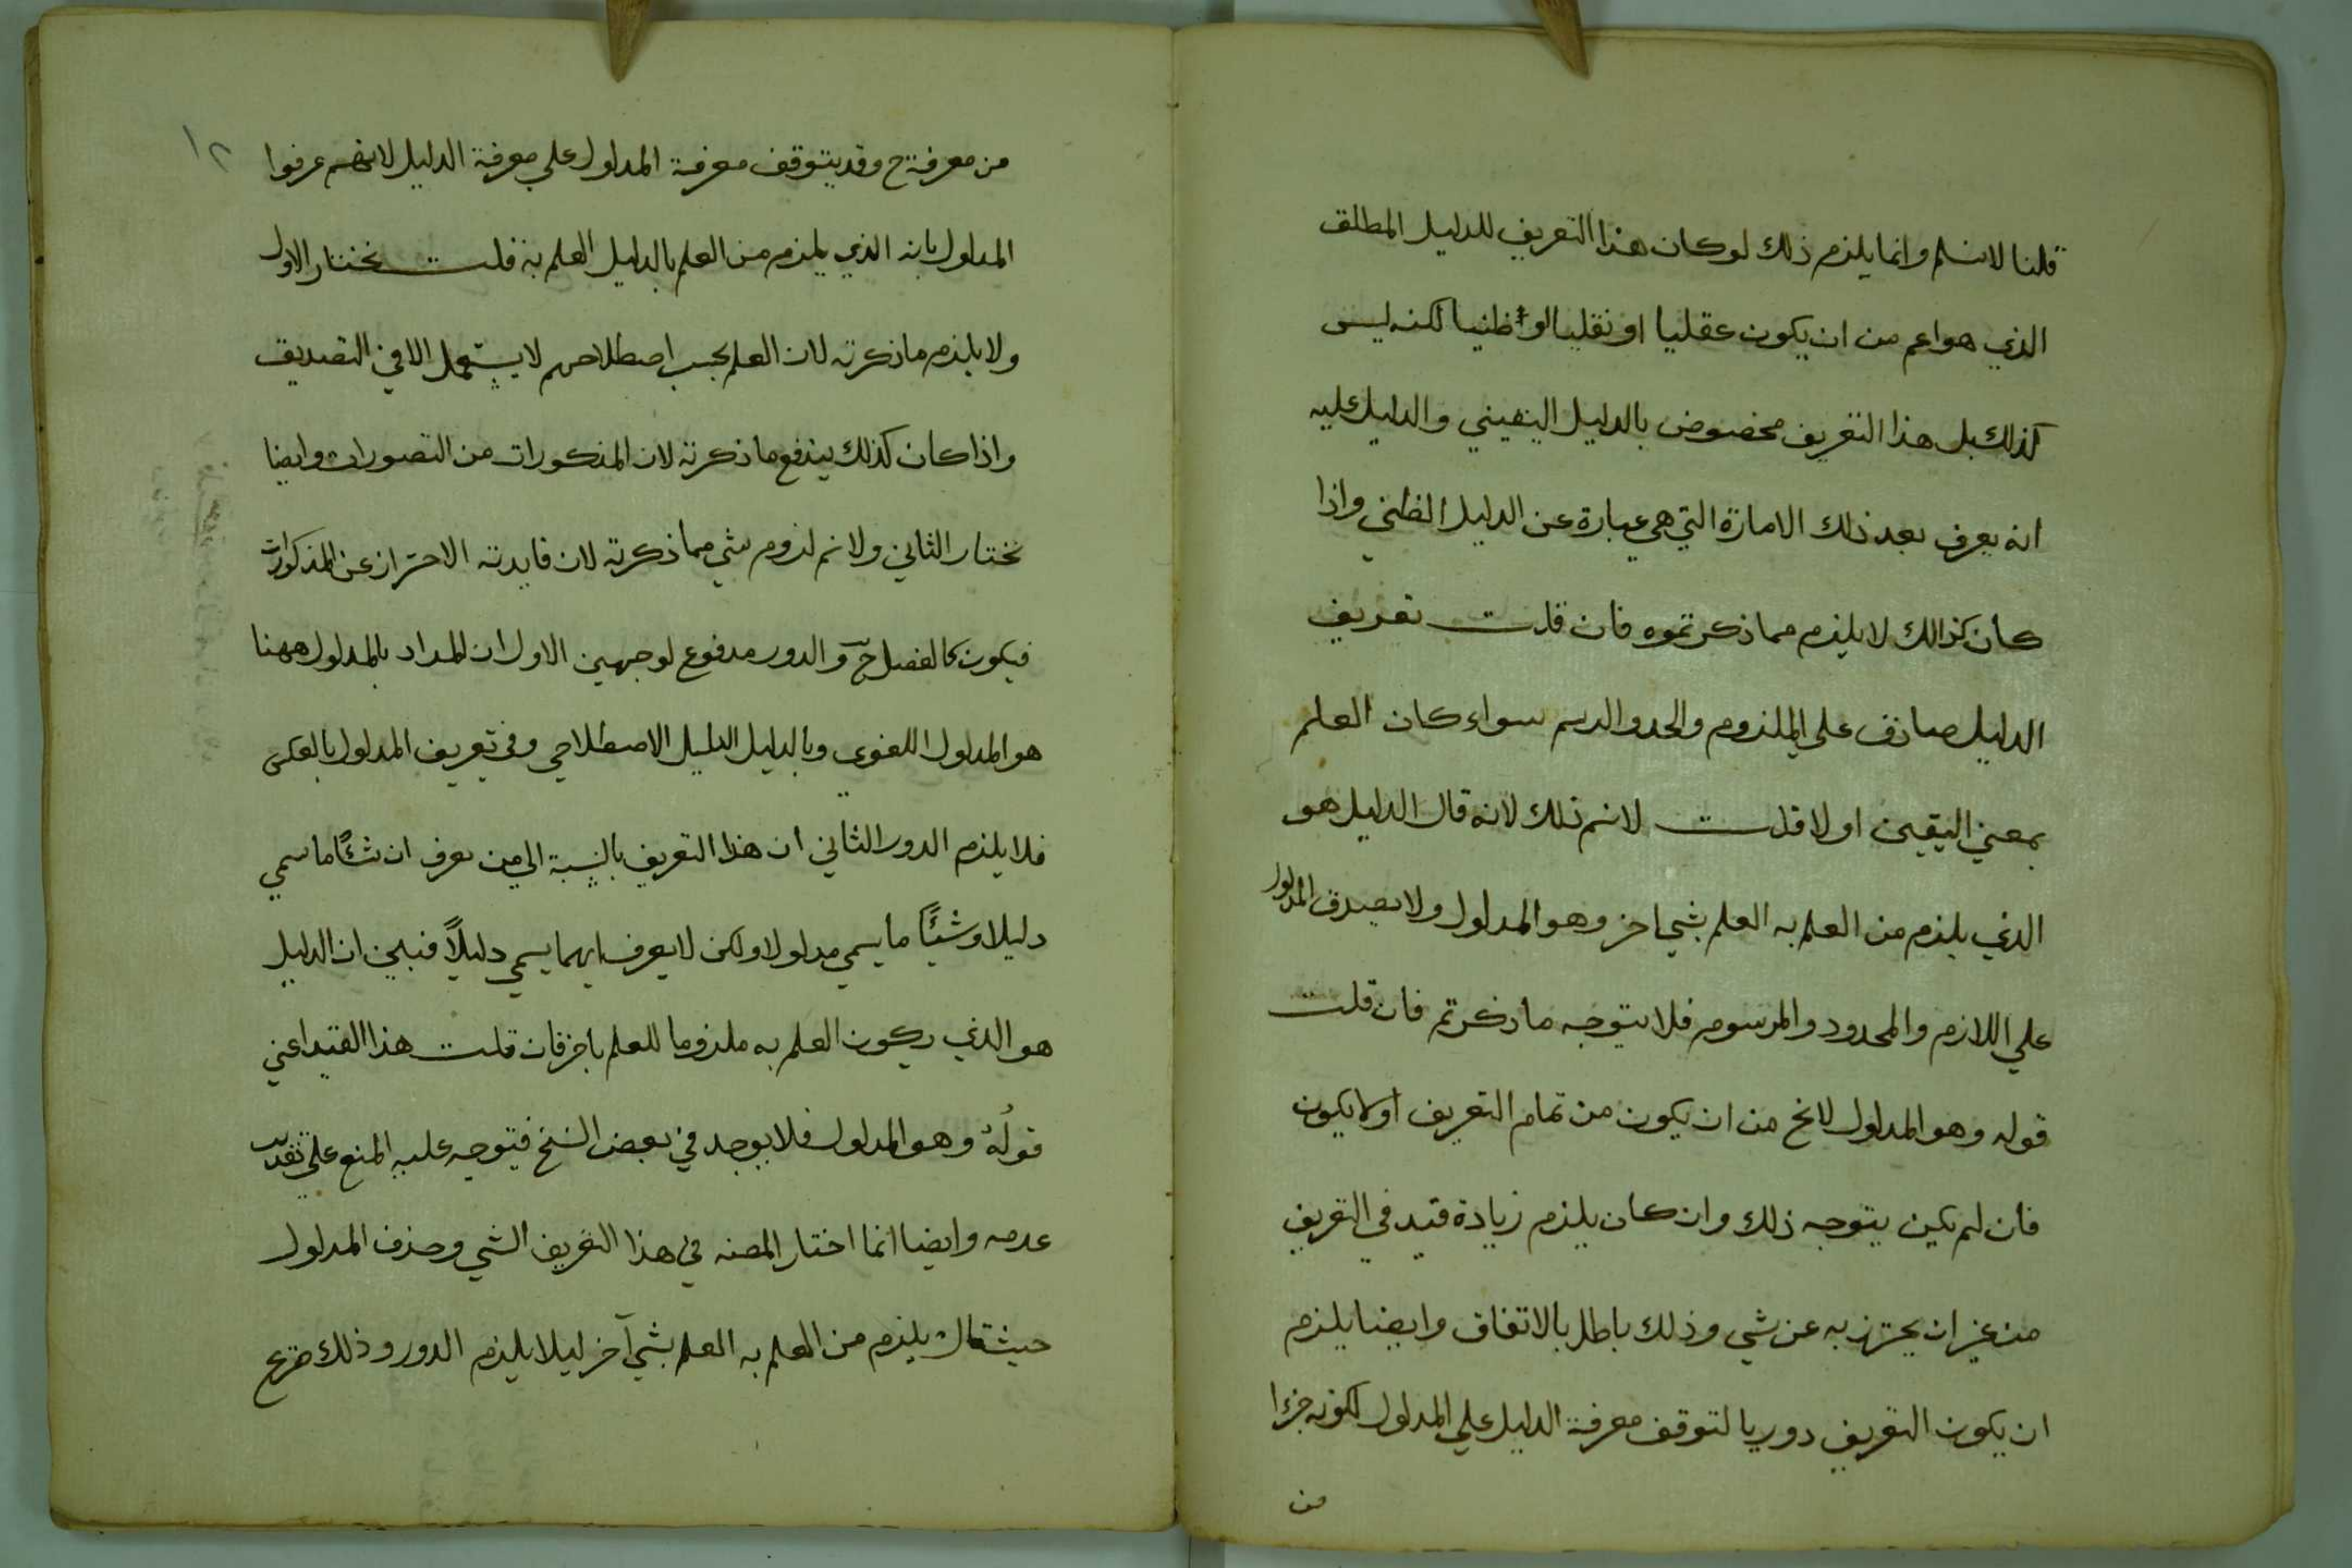 قلنا لا نسلم وانما يلزم ذلك لو كان هذا التعريف للدليل المطلق
الذي هو اعم من ان يكون عقليا او نقليا او ظنيا لكنه ليس
كذلك بل هذا التعريف مخصوص بالدليل اليقيني والدليل عليه
انه يعرف بعد ذلك الامارة التي هي عبارة عن الدليل الظني واذا
كان كذالك لا يلزم مما ذكرتموه فان قلت تعريف
الدليل صادق على الملزوم والحد والرسم سواء كان العلم
بمعني اليقين او لا قلت لانم ذلك لانه قال الدليل هو
الذي يلزم من العلم به العلم بشي اخر وهو المدلول ولا يصدق المدلول
علي اللازم والمحدود والمرسوم فلا يتوجه ما ذكرتم فان قلت
قوله وهو المدلول لا يخ من ان يكون من تمام التعريف او لا يكون
فان لم يكن يتوجه ذلك وان كان يلزم زيادة قيد في التعريف
من غير ان يحترز به عن شي وذلك باطل بالاتفاق وايضا يلزم
ان يكون التعريف دوريا لتوقف معرفة الدليل علي المدلول لكونه جزءا
من
١٢
من معرفة ح وقد يتوقف معرفة المدلول علي معرفة الدليل لانهم عرفوا
المدلول بانه الذي يلزم من العلم بالدليل العلم به قلت نختار الاول
ولا يلزم ما ذكرته لان العلم بحسب اصطلاحهم لا يستعمل الا في التصديق
واذا كان كذلك يندفع ما ذكرته لان المذكورات من التصورات وايضا
نختار الثاني ولانم لزوم شي مما ذكرته لان فايدته الاحتراز عن المذكورات
فيكون كالفصل ح والدور مدفوع لوجهين الاول ان المداد بالمدلول ههنا
هو المدلول اللغوي وبالدليل الدليل الاصطلاحي وفي تعريف المدلول بالعكس
فلا يلزم الدور الثاني ان هذا التعريف بالنسبة الي من يعرف ان شئا ما سمي
دليلا وشيئا ما يسمي مدلولا ولكن لا يعرف ايهما يسمي دليلاً فبين ان الدليل
هو الذي يكون العلم به ملزوما للعلم باخر فان قلت هذا القيد اعني
قوله وهو المدلول فلا يوجد في بعض النسخ فيتوجه عليه المنع علي تقدير
عدمه وايضا انما اختار المصنه في هذا التعريف الشي وحذف المدلول
حيث قال يلزم من العلم به العلم بشي آخر ليلا يلزم الدور وذلك